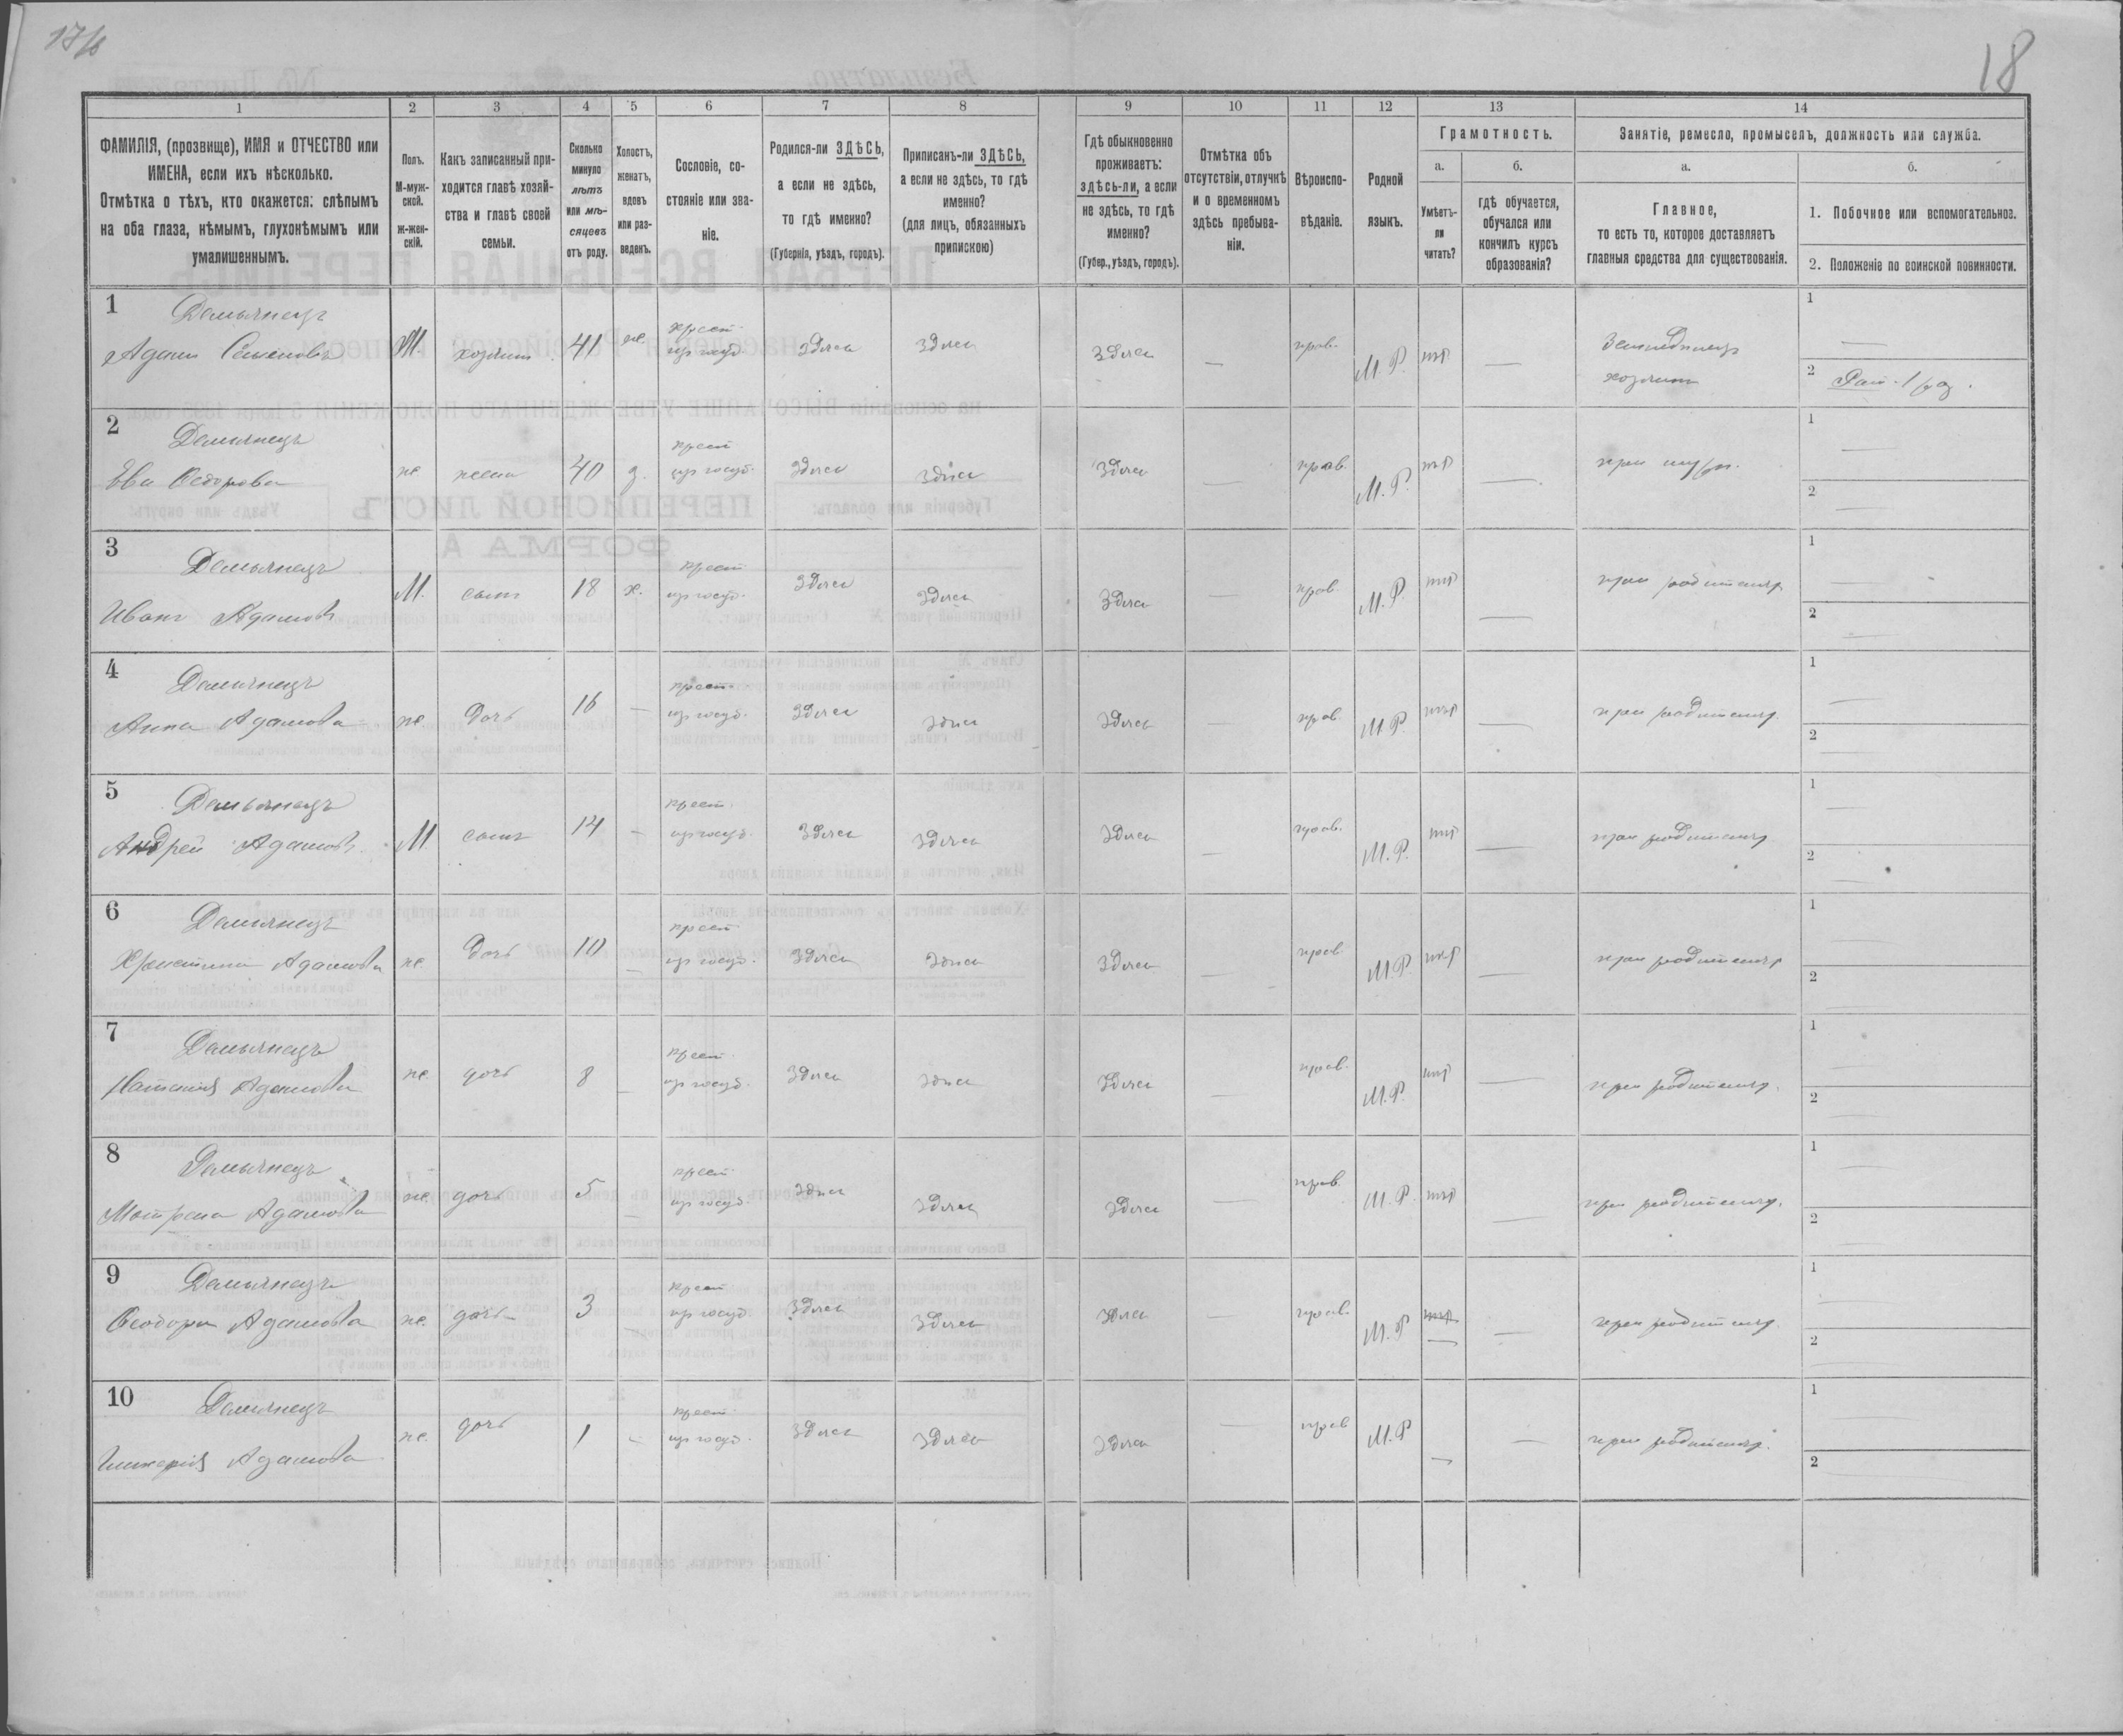 17/б
18
1 2 3 4 5 6 7 8 9 10 11 12 13 14
ФАМИЛІЯ, (прозвище), ИМЯ и ОТЧЕСТВО или
ИМЕНА, если ихъ нѣсколько.
Отмѣтка о тѣхъ, кто окажется: слѣпымъ
на оба глаза, нѣмымъ, глухонѣмымъ или
умалишеннымъ.
Полъ.
М-муж-
ской.
ж-жен-
скій.
Какъ записанный при-
ходится главѣ хозяй-
ства и главѣ своей
семьи.
Сколько
минуло
лѣтъ
или мѣ-
сяцевъ
отъ роду.
Холостъ,
женатъ,
вдовъ
или раз-
веденъ.
Сословіе, со-
стояніе или зва-
ніе.
Родился-ли ЗДѢСЬ,
а если не здѣсь,
то гдѣ именно?
(Губернія, уѣздъ, городъ).
Приписанъ-ли ЗДѢСЬ,
а если не здѣсь, то гдѣ
именно?
(для лицъ, обязанныхъ
припискою)
Гдѣ обыкновенно
проживаетъ:
здѣсь-ли, а если
не здѣсь, то гдѣ
именно?
(Губер., уѣздъ, городъ).
Отмѣтка объ
отсутствіи, отлучкѣ
и о временномъ
здѣсь пребыва-
ніи.
Вѣроиспо-
вѣданіе.
Родной
языкъ.
Грамотность.
а.
Умѣетъ-
ли
читать?
б.
гдѣ обучается,
обучался или
кончилъ курсъ
образованія?
Занятіе, ремесло, промыселъ, должность или служба.
а.
Главное,
то есть то, которое доставляетъ
главныя средства для существованія.
б.
1. Побочное или вспомогательное.
2. Положеніе по воинской повинности.
1 Демьянецъ
Адамъ Семеновъ М. хозяин 41 ж. крест. из госуд. Здесь Здесь Здесь — прав. М.Р. нѣт — Земледелец хозяин
1 —
2 1 раз.
2 Демьянецъ
Ева Федорова ж жена 40 з. крест. из госуд. Здесь Здесь Здесь — прав. М.Р. нѣт — при муже.
1 —
2 —
3 Демьянецъ
Иванъ Адамовъ М. сынъ 18 х. крест. из госуд. Здесь Здесь Здесь — прав. М.Р. нѣт — при родителях
1 —
2 —
4 Демьянецъ
Анна Адамова ж дочь 16 — крест. из госуд. Здесь Здесь Здесь — прав. М.Р. нѣт — при родителях
1 —
2 —
5 Демьянецъ
Андрей Адамовъ М сынъ 14 — крест. из госуд. Здесь Здесь Здесь — прав. М.Р. нѣт — при родителях
1 —
2 —
6 Демьянецъ
Христина Адамова ж. дочь 10 — крест. из госуд. Здесь Здесь Здесь — прав. М.Р. нѣт — при родителях
1 —
2 —
7 Демьянецъ
Наталия Адамова ж. дочь 8 — крест. из госуд. Здесь Здесь Здесь — прав. М.Р. нѣт — при родителях.
1 —
2 —
8 Демьянецъ
Мотрена Адамова ж. дочь 5 — крест. из госуд. Здесь Здесь Здесь — прав. М.Р. нѣт — при родителях.
1 —
2 —
9 Демьянецъ
Феодора Адамова ж. дочь 3 — крест. из госуд. Здесь Здесь Здесь — прав. М.Р — — при родителях
1 —
2 —
10 Демьянецъ
Гликерия Адамова ж. дочь 1 — крест. из госуд. Здесь Здесь Здесь — прав М.Р — — при родителях.
1 —
2 —